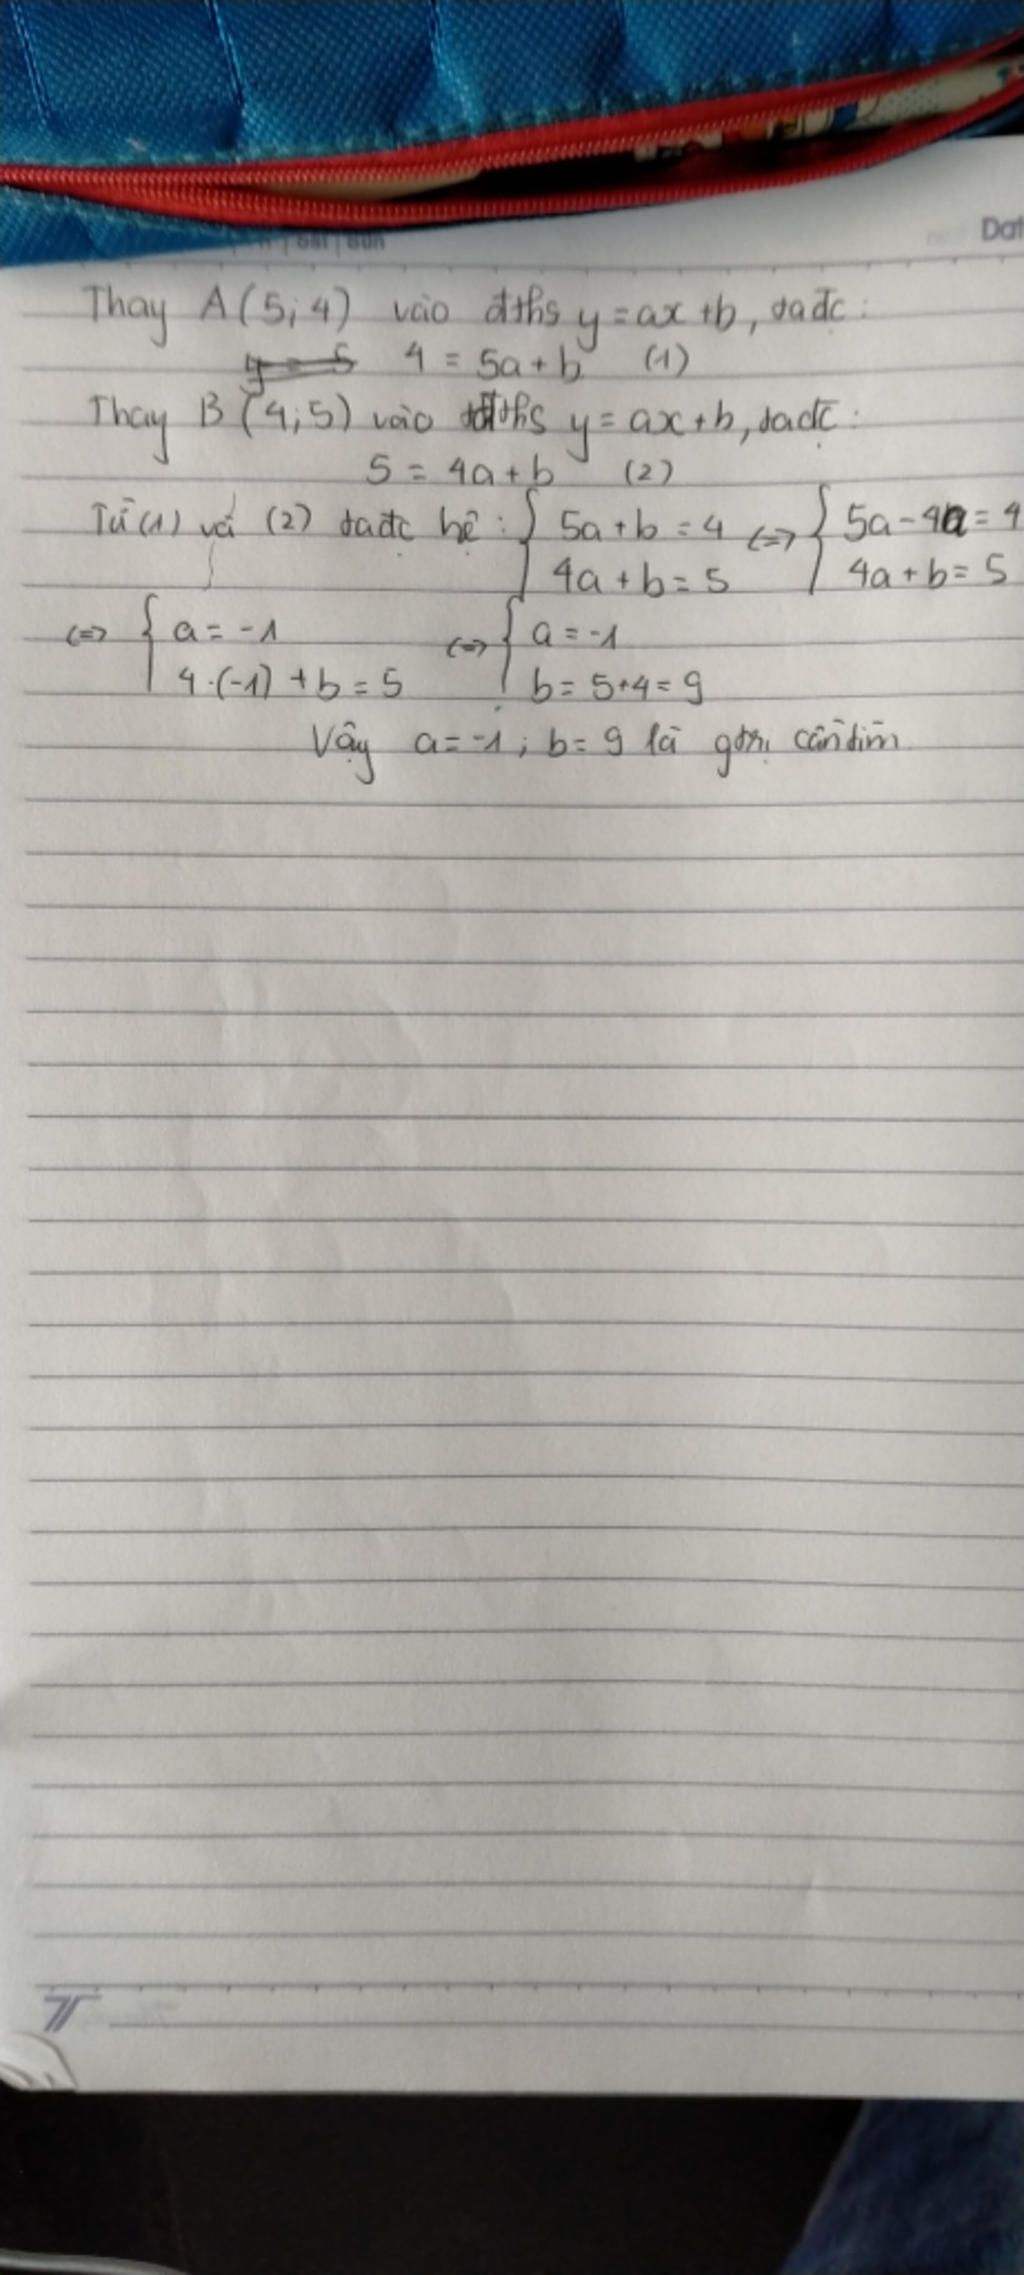 Sat | Sun
Dat
Thay A(5;4) vào đths y=ax+b, ta đc:
4 = 5a+b (1)
Thay B(4;5) vào đths y=ax+b, ta đc:
5 = 4a+b (2)
Từ (1) và (2) ta đc hệ: { 5a+b=4 <=> { 5a-4a=4
4a+b=5 4a+b=5
<=> { a=-1 <=> { a=-1
4.(-1)+b=5 b=5+4=9
Vậy a=-1; b=9 là gtrị cần tìm